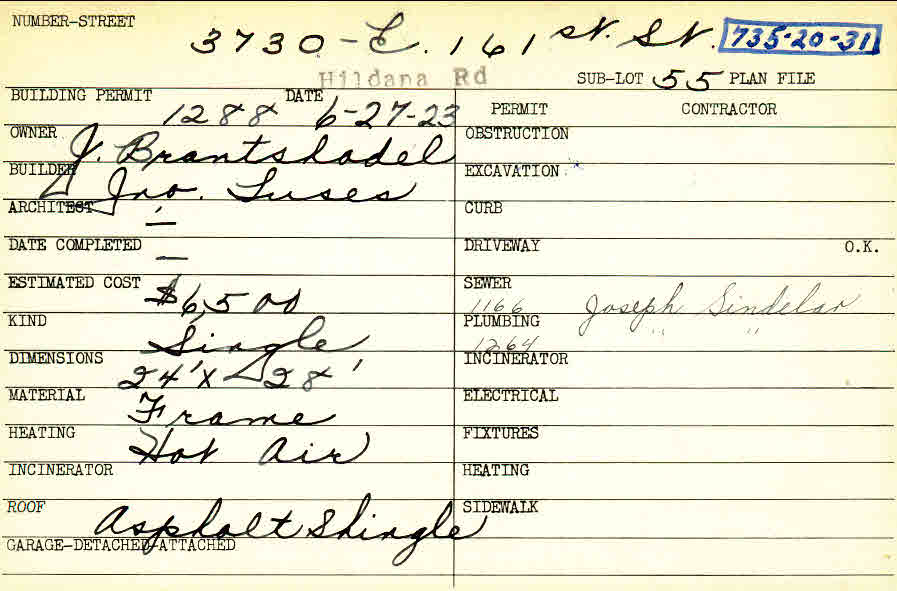 NUMBER-STREET
3730-E. 161 st. St. 735-20-31
Hildana Rd
SUB-LOT 55 PLAN FILE
BUILDING PERMIT 1288 DATE 6-27-23
PERMIT CONTRACTOR
OWNER J. Brantshadel
OBSTRUCTION
BUILDER Jno. Luses
EXCAVATION
ARCHITEST -
CURB
DATE COMPLETED -
DRIVEWAY O.K.
ESTIMATED COST $6,500
SEWER 1166 Joseph Sindelar
KIND Single
PLUMBING 1264 " "
DIMENSIONS 24' X 28'
INCINERATOR
MATERIAL Frame
ELECTRICAL
HEATING Hot Air
FIXTURES
INCINERATOR
HEATING
ROOF Asphalt Shingle
SIDEWALK
GARAGE-DETACHED-ATTACHED